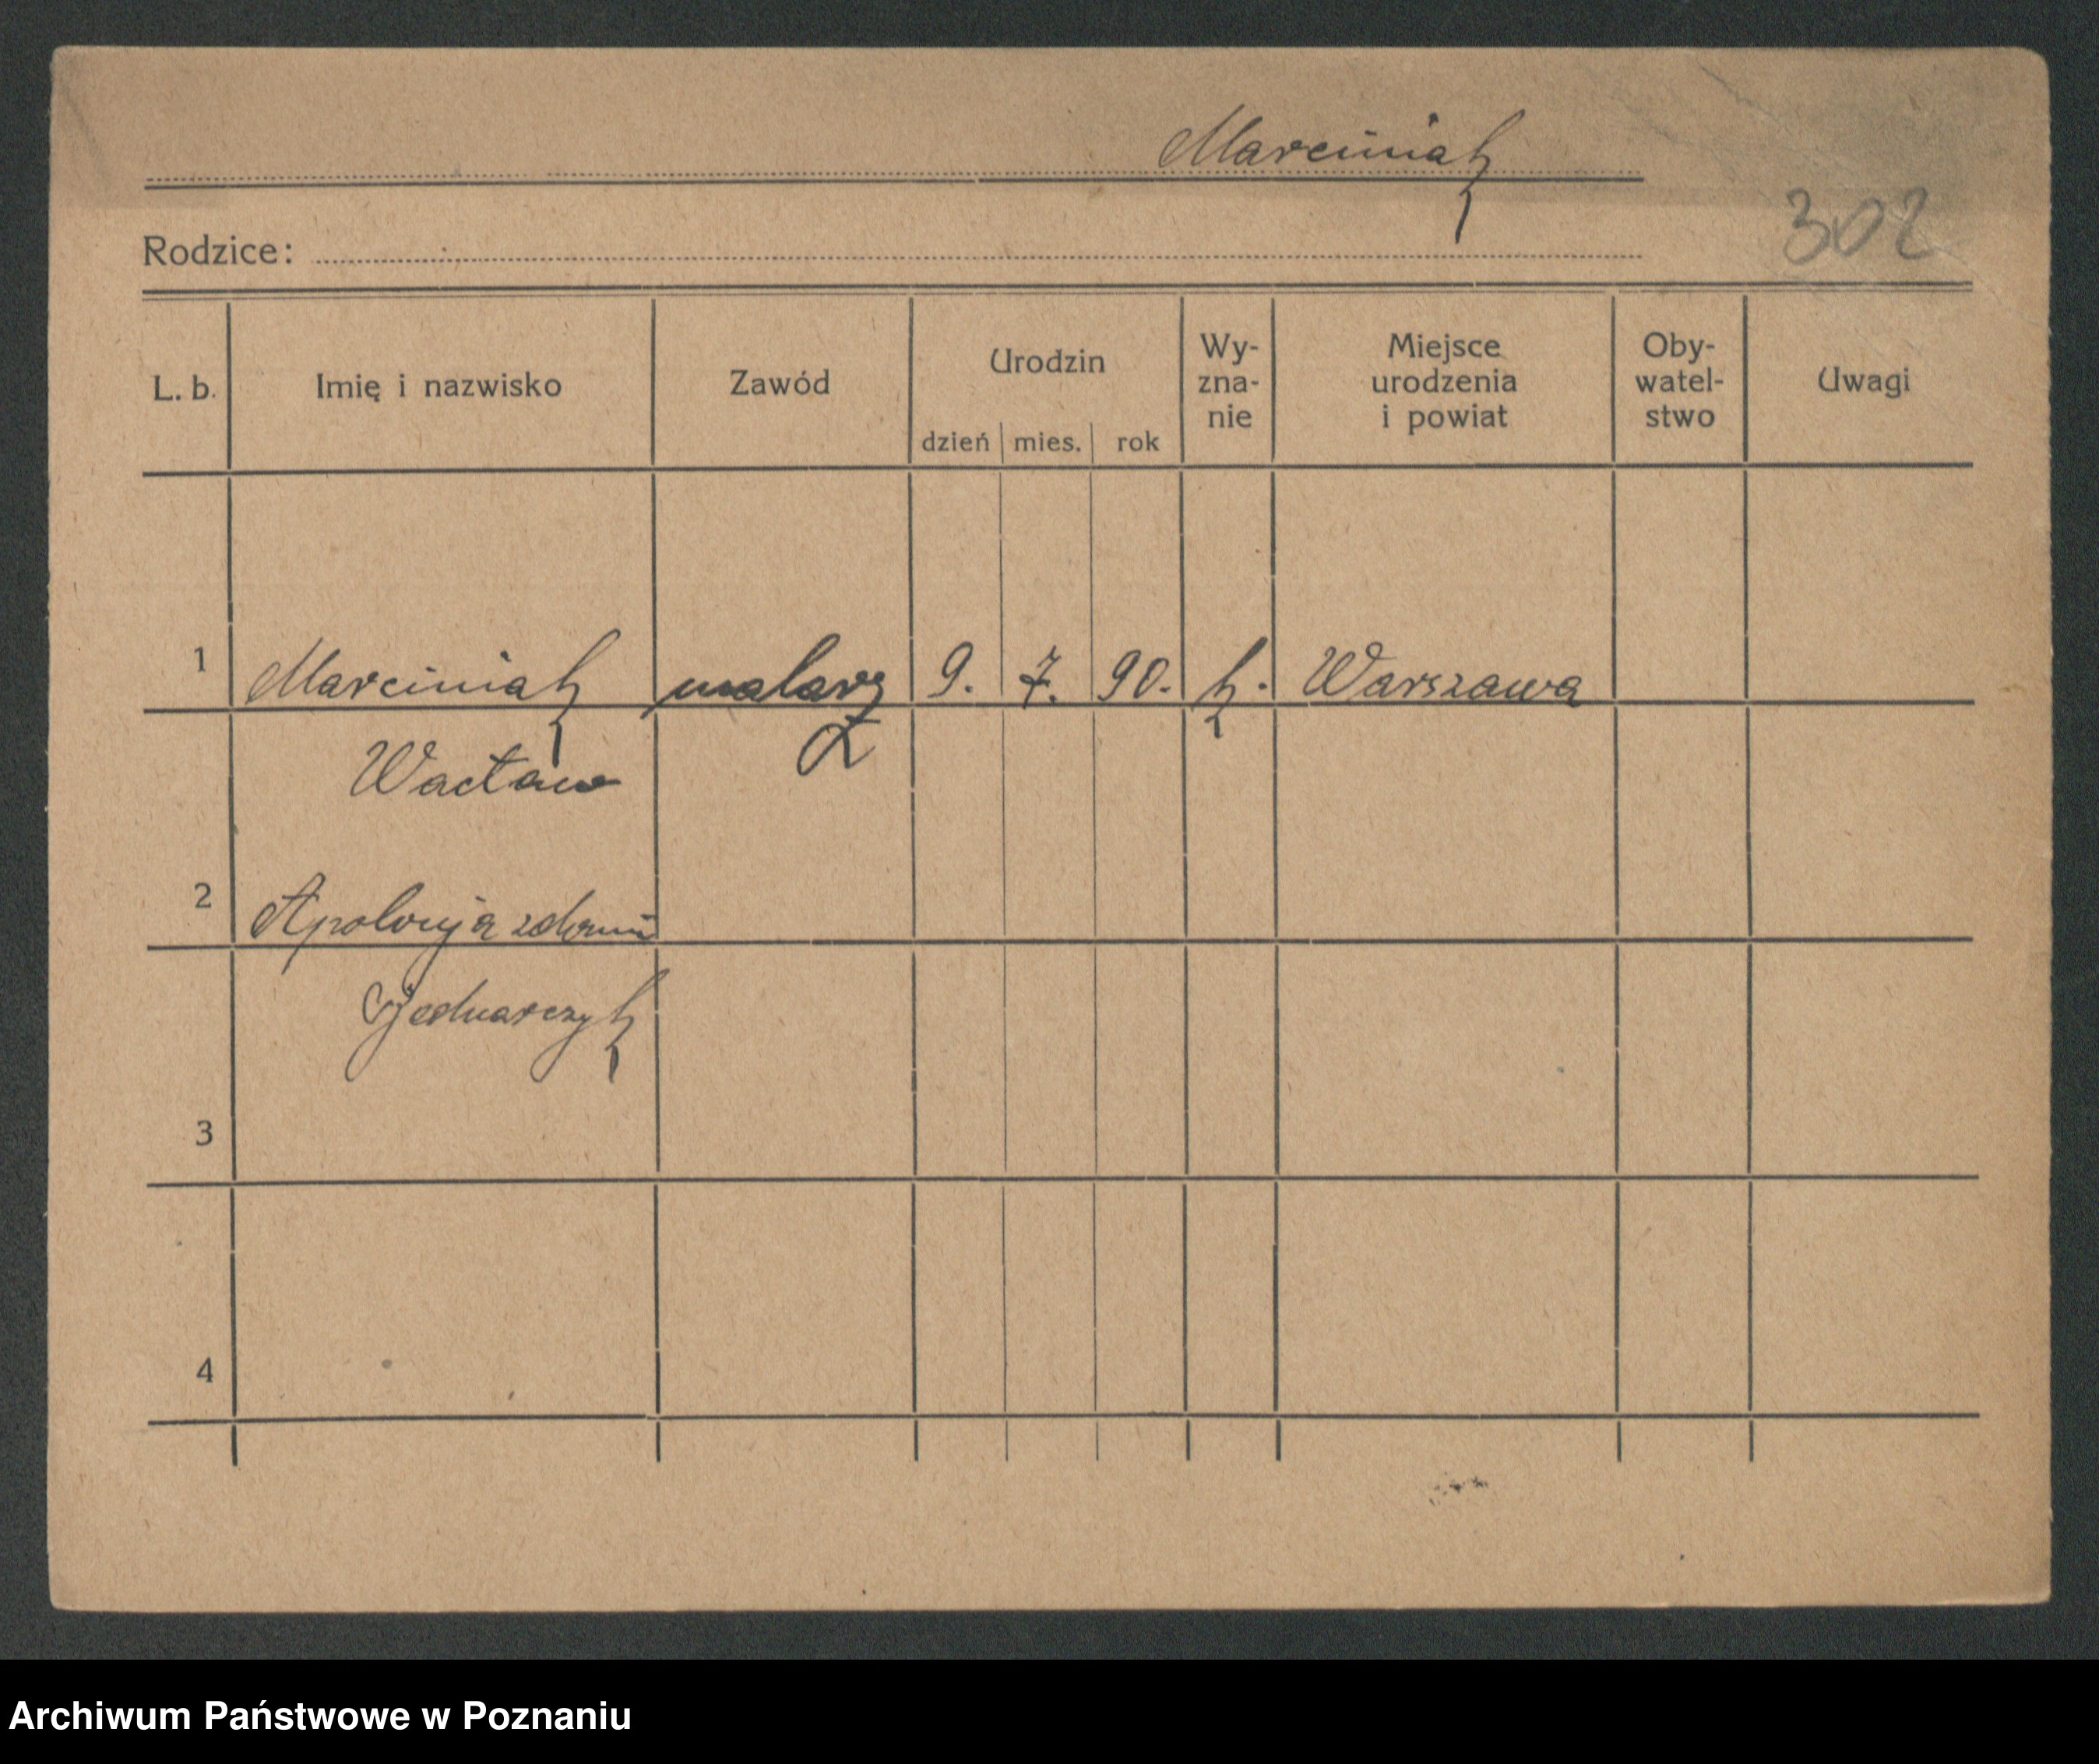 Marciniak
302
Rodzice:
L. b. Imię i nazwisko Zawód Urodzin dzień mies. rok Wy-zna-nie Miejsce urodzenia i powiat Oby-watel-stwo Uwagi
1 Marciniak malarz 9. 7. 90. k. Warszawa
Wacław
2 Apolonja z domu
Jednarczyk
3
4
Archiwum Państwowe w Poznaniu